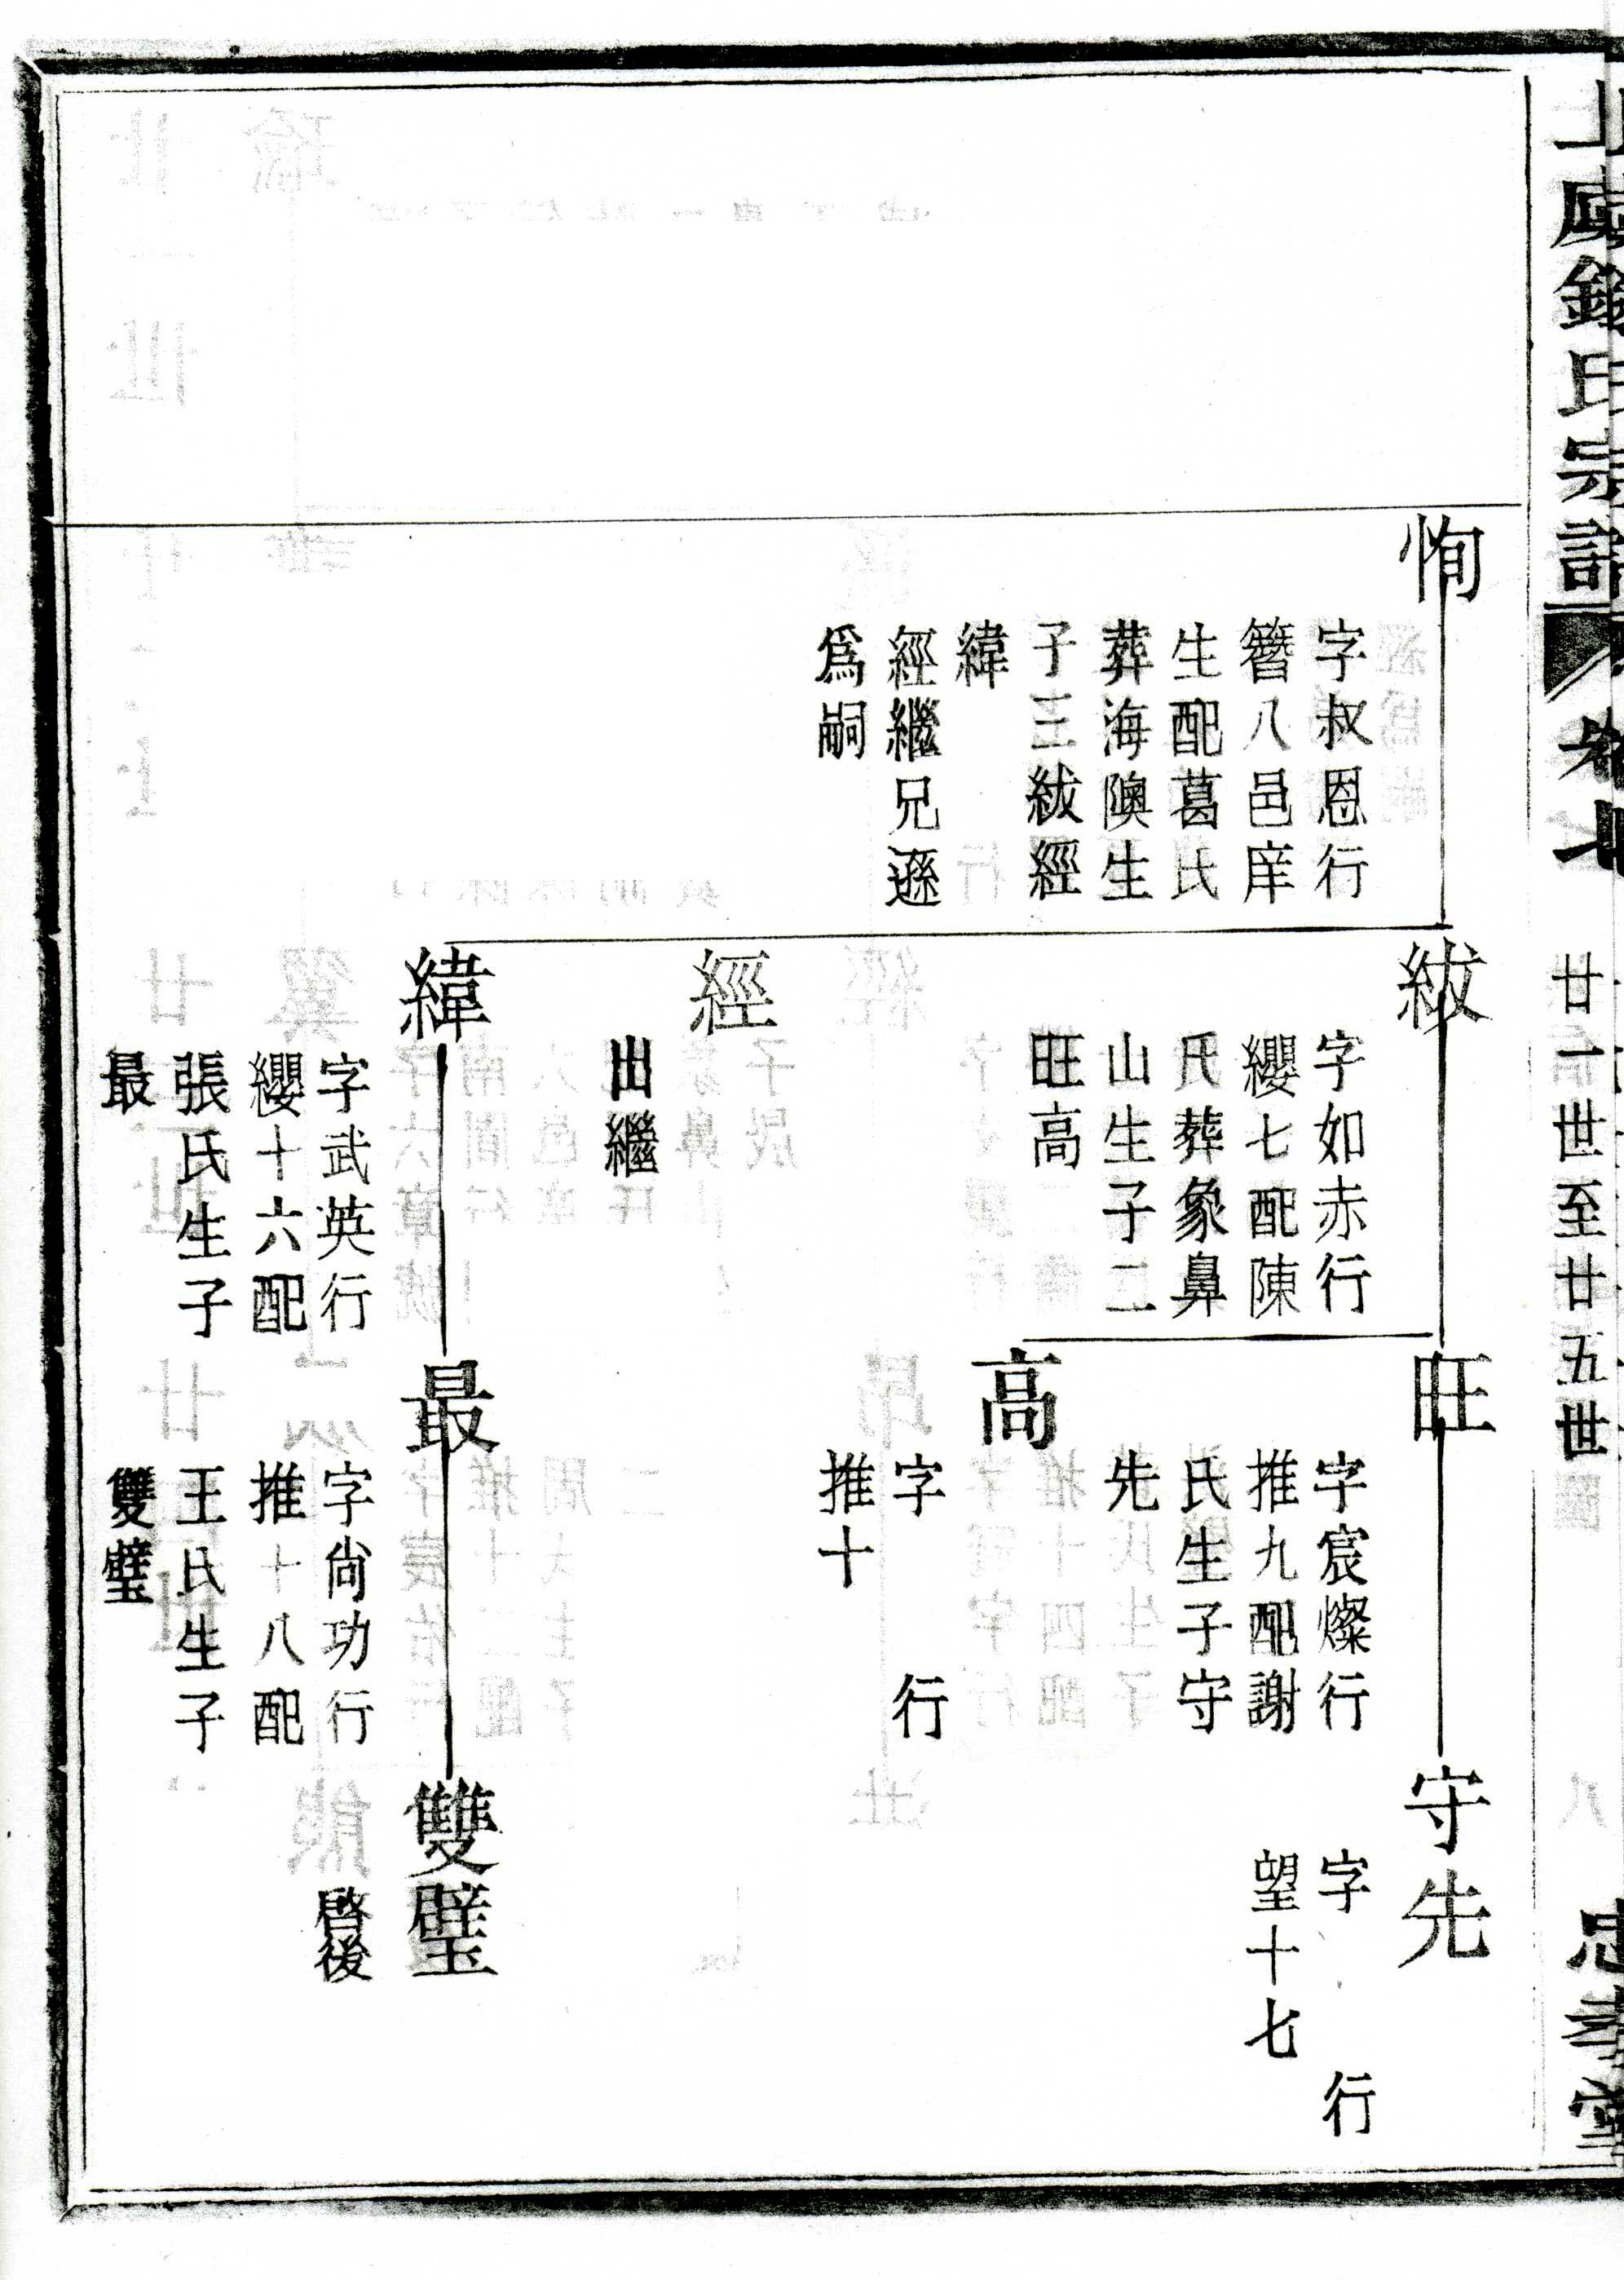 上虞錢氏宗譜
廿一世至廿五世
八
忠孝堂
恂
字叔恩行
簪八邑庠
生配葛氏
葬海隩生
子三紱經
緯
經繼兄遜
爲嗣
紱
字如赤行
纓七配陳
氏葬象鼻
山生子二
旺高
旺
字宸燦行
推九配謝
氏生子守
先
守先
字　行
望十七
高
字　行
推十
經
出繼
緯
字武英行
纓十六配
張氏生子
最
最
字尙功行
推十八配
王氏生子
雙璧
雙璧
啓後